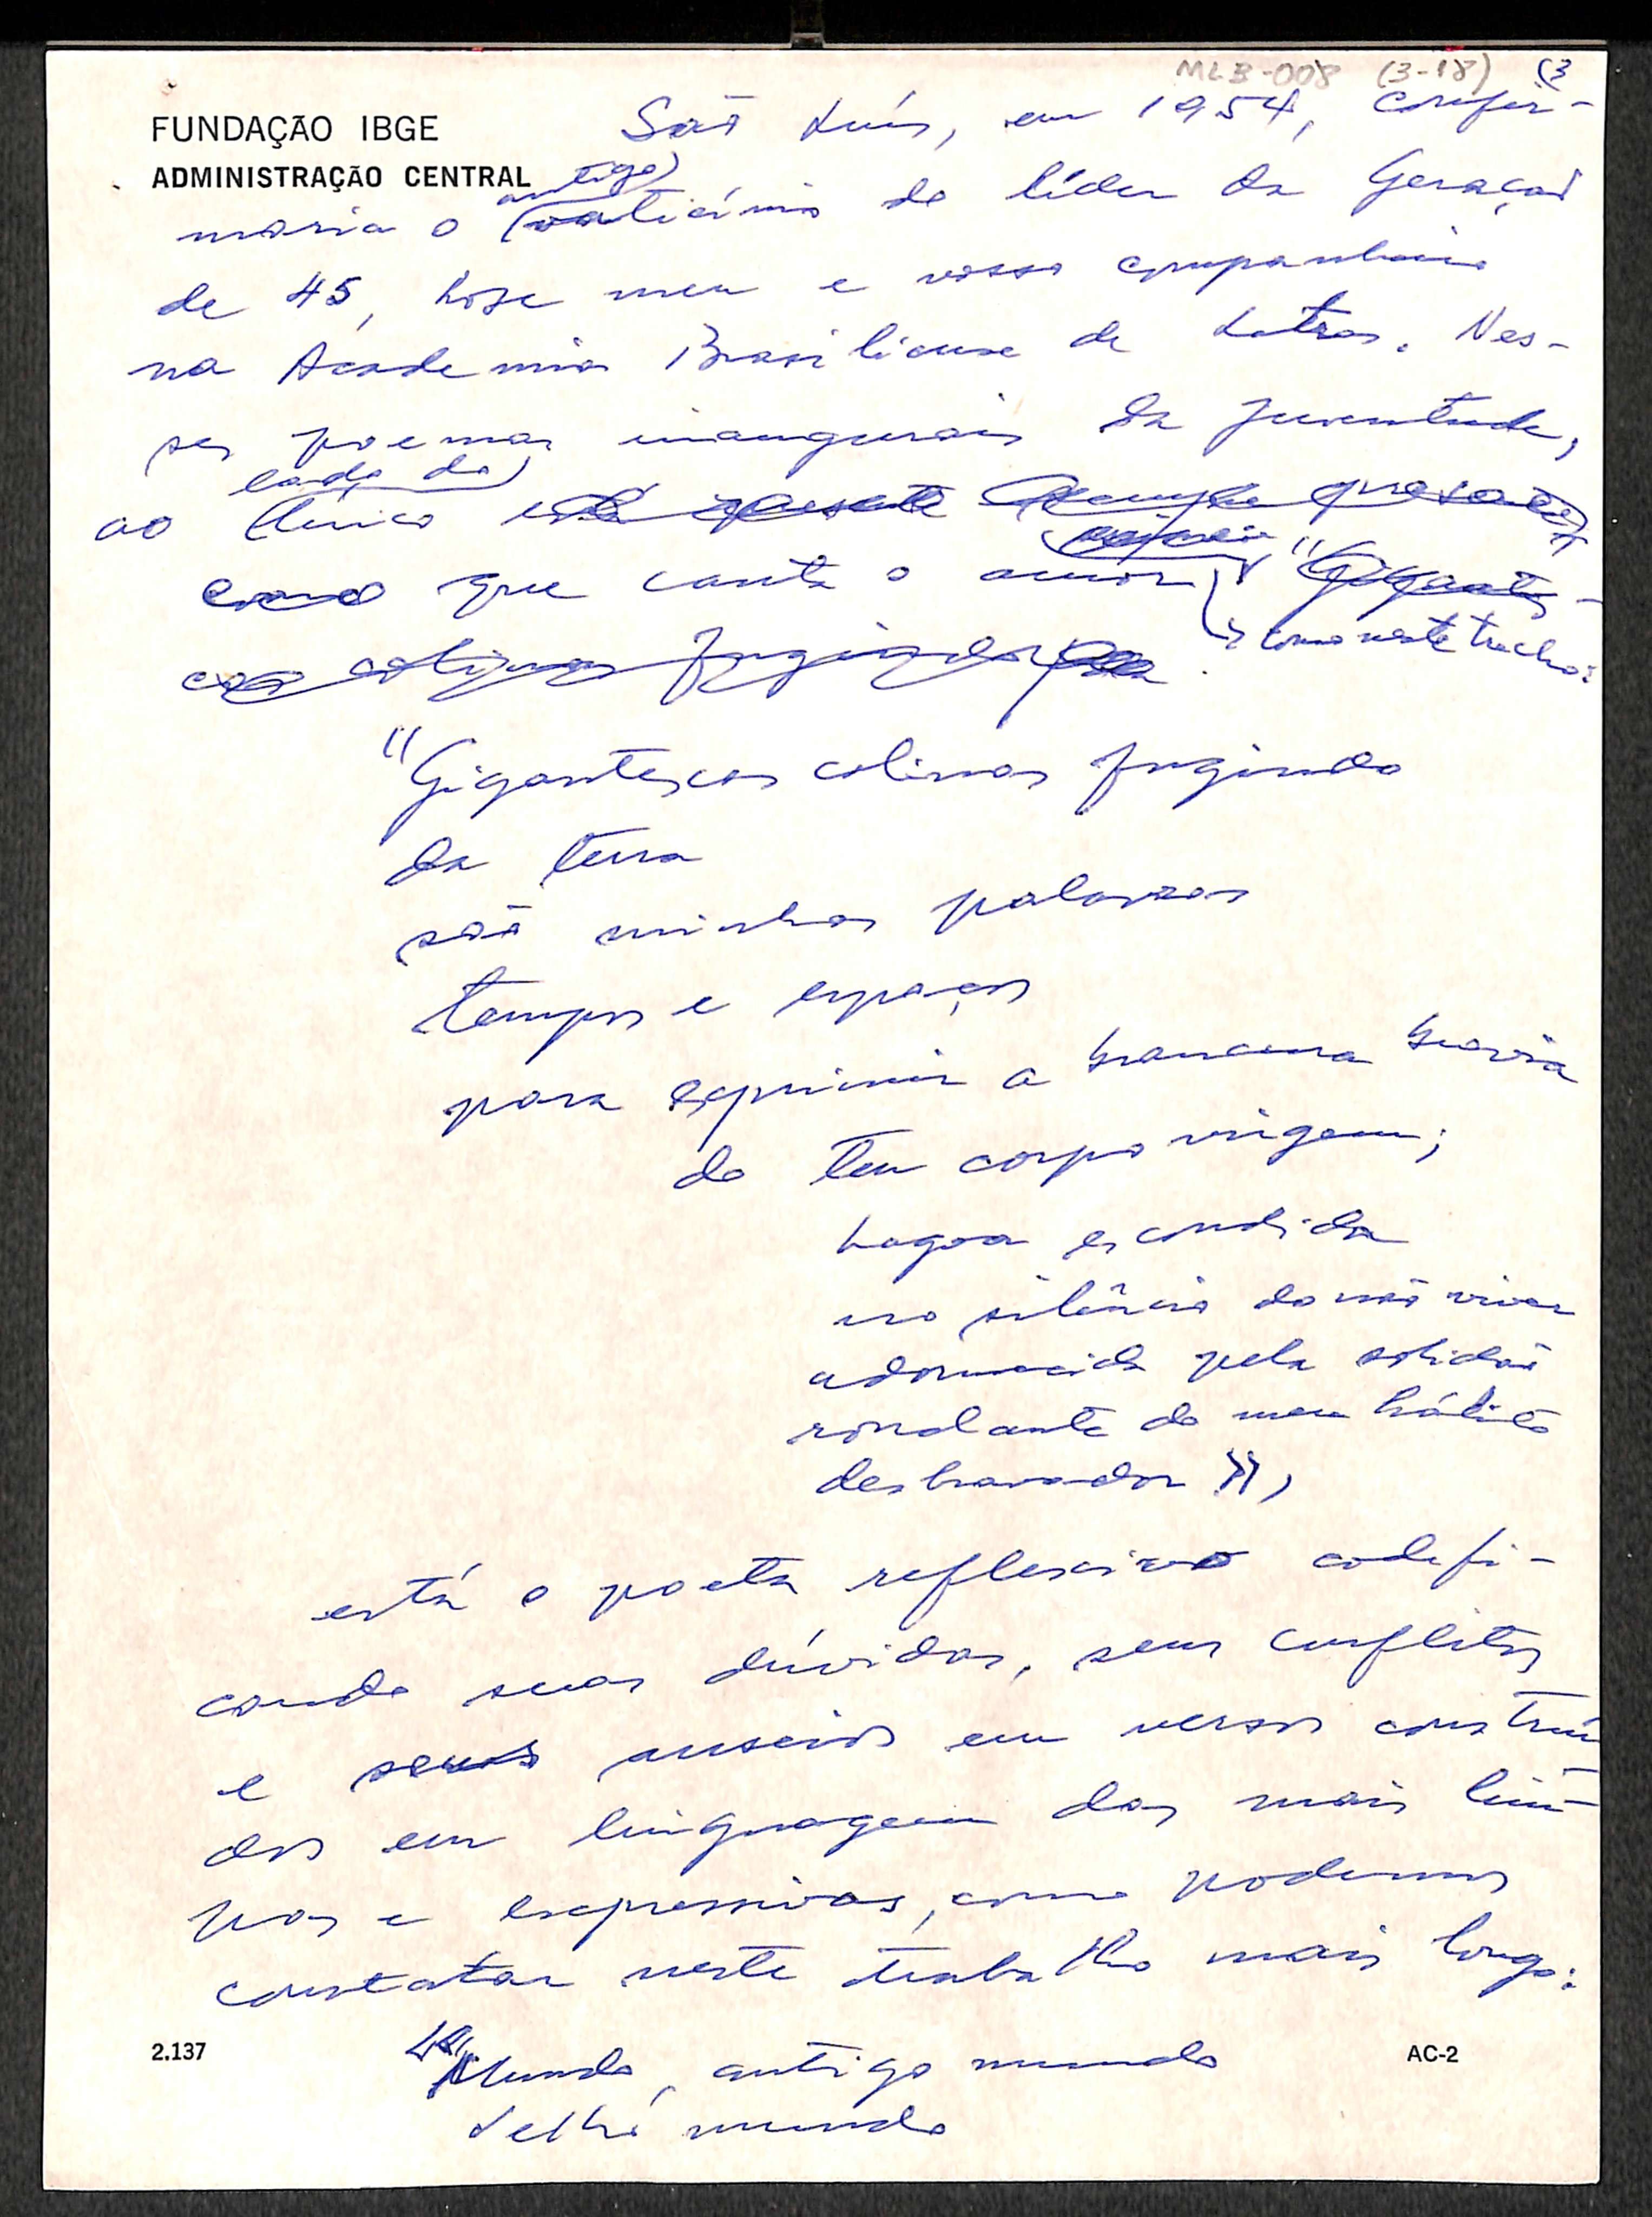 MLB-008 (3-18) (3
FUNDAÇÃO IBGE
ADMINISTRAÇÃO CENTRAL
São Luís, em 1954, confir-
antigo
maria o vaticínio do líder da Geração
de 45, hoje meu e vosso companheiro
na Academia Brasiliense de Letras. Nes-
ses poemas inaugurais da juventude,
lado do
ao lírico está
como que canta o amor, "Gigantes-
como neste trecho:
cas colinas fugindo
"Gigantescas colinas fugindo
da terra
são minhas palavras
tempos e espaços
para exprimir a brancura bravia
do teu corpo virgem;
Lagoa escondida
no silêncio do não viver
adormecida pela solidão
rondante do meu hálito
desbravador",
está o poeta reflexivo codifi-
cando suas dúvidas, seus conflitos
e seus anseios em versos construí-
dos em linguagem das mais lim-
pas e expressivas, como podemos
constatar neste trabalho mais longo:
2.137
AC-2
"Mundo, antigo mundo
Velho mundo